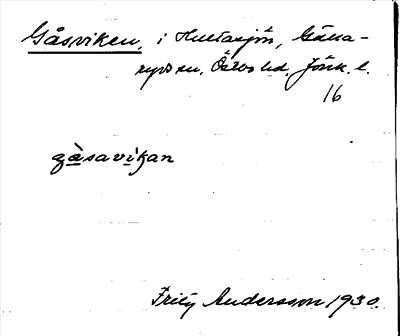 Gåsviken, i Hultasjön, Gälla-
ryds sn. Östbo hd. Jönk. l.
16
gåsavikan
Fritz Andersson 1930.